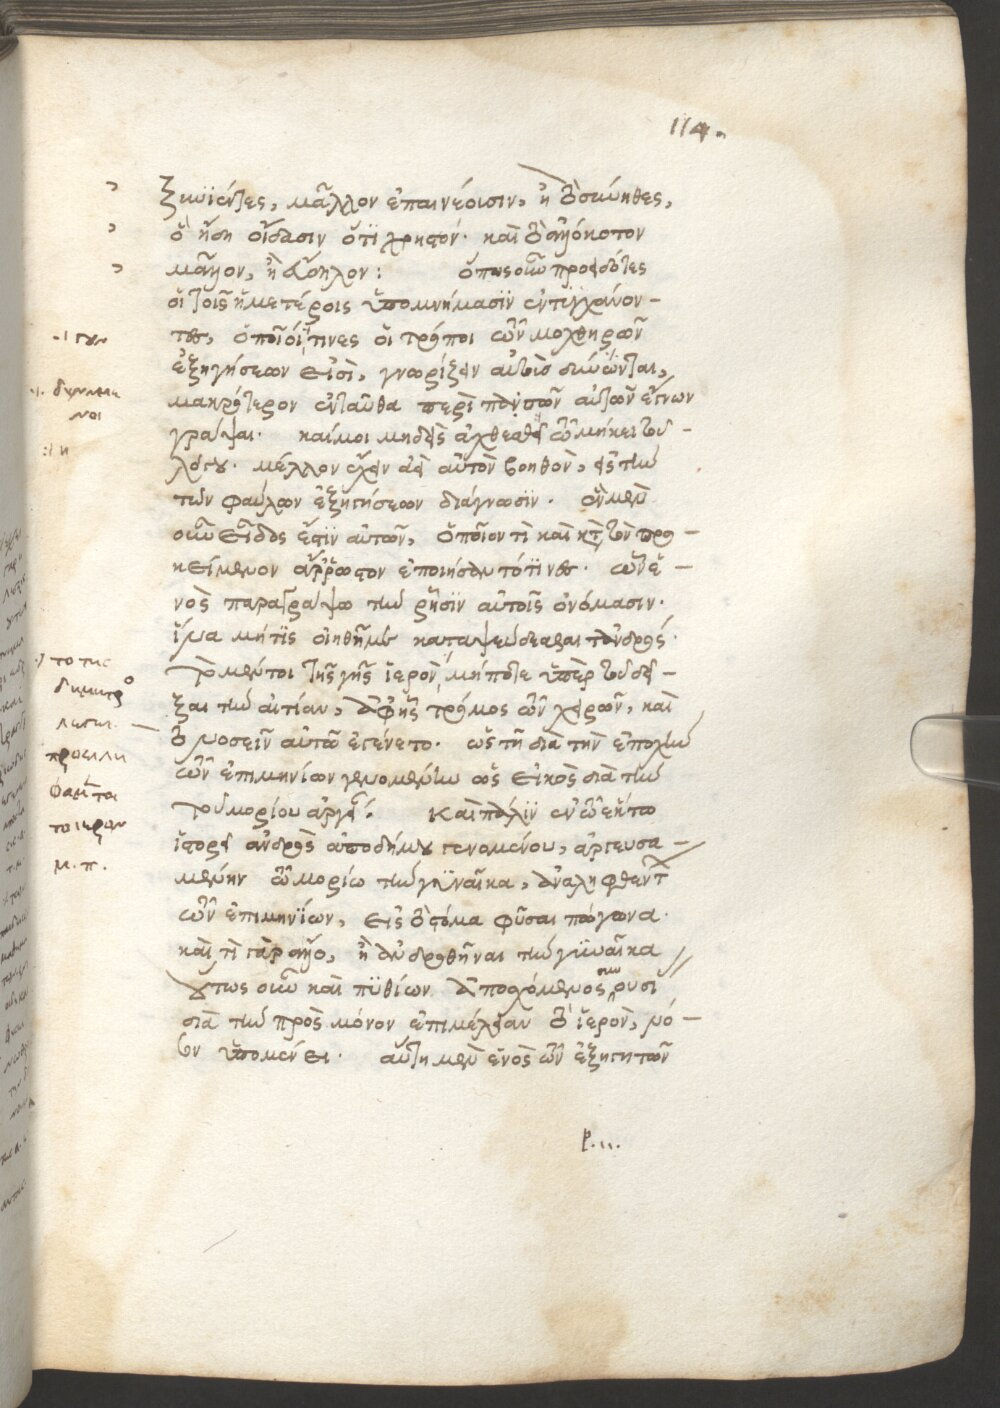 114.
ξυνιέντες, μᾶλλον ἐπαινέουσιν, ἢ τὸ σύνηθες,
ὃ ἤδη οἴδασιν ὅτι χρηστόν· καὶ τὸ ἀλλόκοτον
μᾶλλον, ἢ εὔδηλον: ὅπως οὖν προειδότες
οἱ τοῖς ἡμετέροις ὑπομνήμασιν ἐντυγχάνον-
τες, ὁποῖοί τινες οἱ τρόποι τῶν μοχθηρῶν
ἐξηγήσεων εἰσὶ, γνωρίζειν αὐτοὺς
μακρότερον ἐνταῦθα περὶ πασῶν αὐτῶν ἔγνων
γράψαι· καί μοι μηδεὶς ἀχθεσθῇ τῷ μήκει τοῦ
λόγου· μέλλον ἕξειν ἀεὶ αὐτὸν βοηθὸν, εἰς τὴν
τῶν φαύλων ἐξηγήσεων διάγνωσιν· ἓν μὲν
οὖν εἶδος ἔστιν αὐτῶν, ὁποῖόν τι καὶ κατὰ τὸν προ-
κείμενον ἄρρωστον ἐποιήσαντό τινες· ὧν ἑ-
νὸς παραγράψω τὴν ῥῆσιν αὐτοῖς ὀνόμασιν·
ἵνα μή τις οἰηθῇ με καταψεύδεσθαι τἀνδρός·
τὸ μέντοι τῆς γῆς ἱερὸν, μήποτε ὑπὲρ τοῦ δεῖ-
ξαι τὴν αἰτίαν, ἀφ' ἧς τρόμος τῶν χειρῶν, καὶ
τὸ νοσεῖν αὐτῷ ἐγένετο· ὥστῃ διὰ τὴν ἐποχὴν
τῶν ἐπιμηνίων γενομένην ὡς εἰκὸς διὰ τὴν
τοῦ μορίου ἀργεί. Καὶ πάλιν ἐν τῷ ἕκτῳ
ἱστορεῖ ἀνδρὸς ἀποδήμου γεναμένου, ἀργευσα-
μένην τῷ μορίῳ τὴν γυναῖκα, ἀναληφθέντων
τῶν ἐπιμηνίων, εἰς τὸ στόμα φῦσαι πώγωνα·
καὶ τί γὰρ ἄλλο, ἢ ἀνδρωθῆναι τὴν γυναῖκα
οὕτως οὖν καὶ πυθίων ἀπεχόμενος συνουσί
διὰ τὴν πρὸς μόνον ἐπιμέλειαν τὸ ἱερὸν, νό-
σον ὑπομένει· αὕτη μὲν ἑνὸς τῶν ἐξηγητῶν
δυνάμε
νοι
:ι η
το της
δημητρο
προειλη
φαμεν τοι
το ιερον
μ. π.